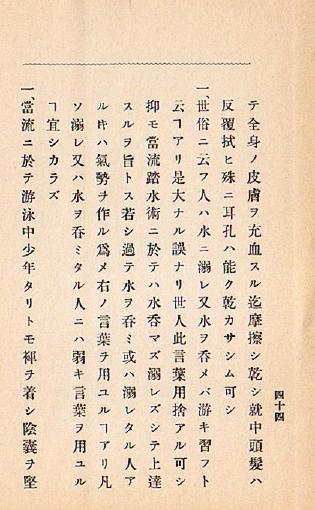 テ全身ノ皮膚ヲ充血スル迄摩擦シ乾シ就中頭髮ハ
反覆拭ヒ殊ニ耳孔ハ能ク乾カサシム可シ
一、世俗ニ云フ人ハ水ニ溺レ又水ヲ呑メバ游キ習フト
云ヿアリ是大ナル誤ナリ世人此言葉用捨アル可シ
抑モ當流踏水術ニ於テハ水呑マズ溺レズシテ上達
スルヲ旨トス若シ過テ水ヲ呑ミ或ハ溺レタル人ア
ルキハ氣勢ヲ作ル爲メ右ノ言葉ヲ用ユルヿアリ凡
ソ溺レ又ハ水ヲ呑ミタル人ニハ弱キ言葉ヲ用ユル
ヿ宜シカラズ
一、當流ニ於テ游泳中少年タリトモ褌ヲ着シ陰囊ヲ堅
四十四